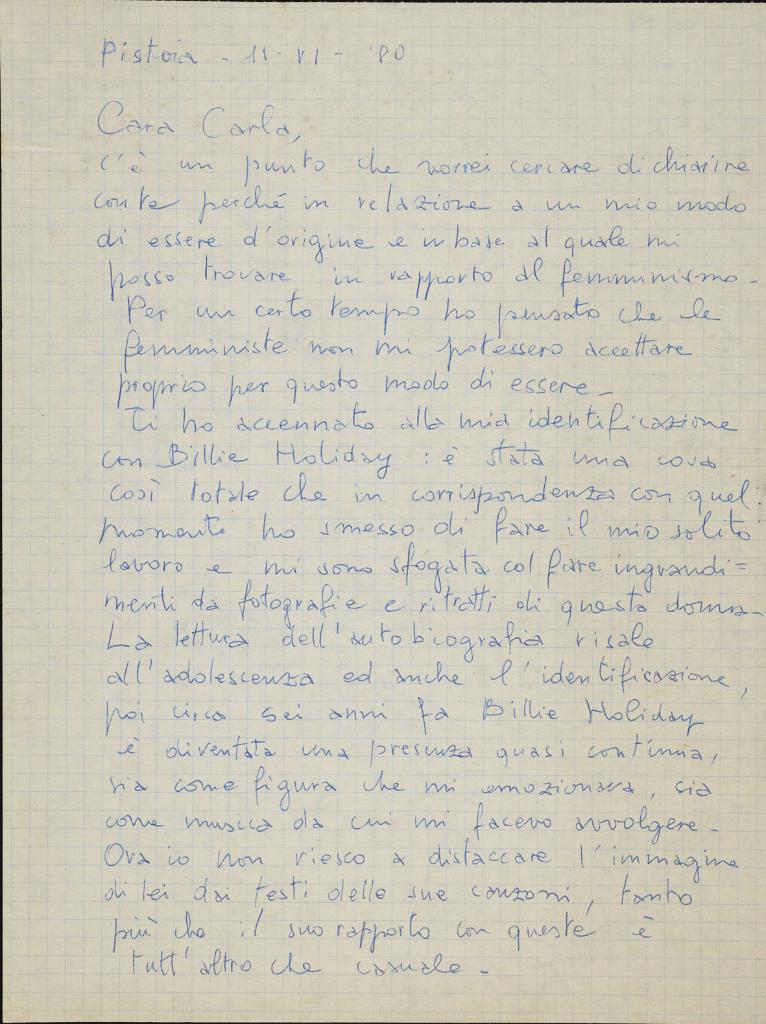 Pistoia - 11 - VI - '80
Cara Carla,
c'è un punto che vorrei cercare di chiarire
con te perché in relazione a un mio modo
di essere d'origine e in base al quale mi
posso trovare in rapporto al femminismo -
Per un certo tempo ho pensato che le
femministe non mi potessero accettare
proprio per questo modo di essere -
Ti ho accennato alla mia identificazione
con Billie Holiday : è stata una cosa
così totale che in corrispondenza con quel
momento ho smesso di fare il mio solito
lavoro e mi sono sfogata col fare ingrandi=
menti da fotografie e ritratti di questa donna -
La lettura dell'autobiografia risale
all'adolescenza ed anche l'identificazione,
poi circa sei anni fa Billie Holiday
è diventata una presenza quasi continua,
sia come figura che mi emozionava, sia
come musica da cui mi facevo avvolgere -
Ora io non riesco a distaccare l'immagine
di lei dai testi delle sue canzoni, tanto
più che il suo rapporto con queste è
tutt'altro che casuale -